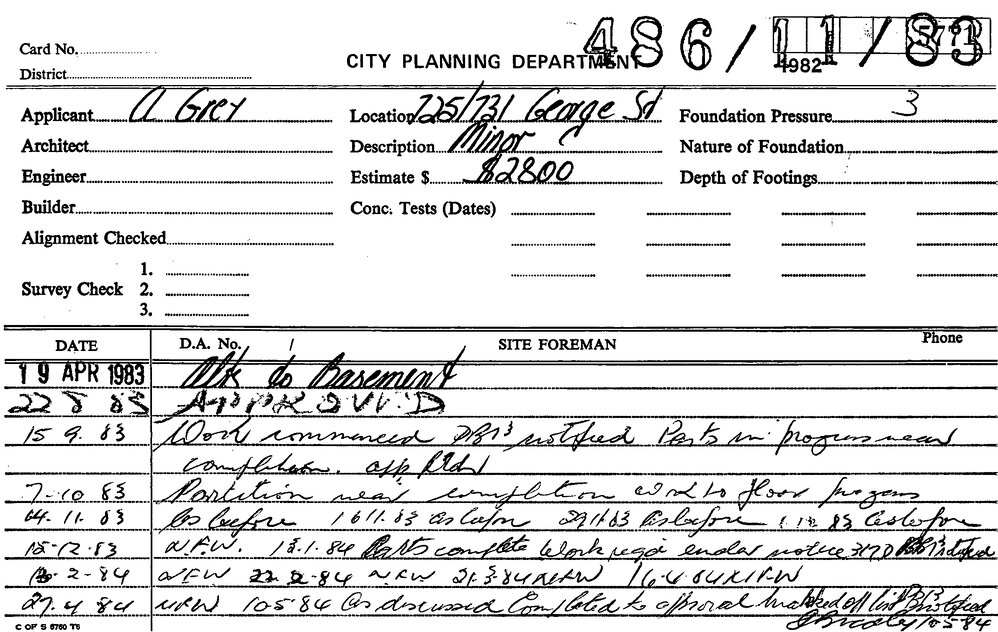 486/11/83
5771
Card No.
CITY PLANNING DEPARTMENT 1982
District
Applicant A Grey Location 725/731 George St Foundation Pressure 3
Architect Description Minor Nature of Foundation
Engineer Estimate $ $2800 Depth of Footings
Builder Conc. Tests (Dates)
Alignment Checked
1.
Survey Check 2.
3.
DATE D.A. No. / SITE FOREMAN Phone
19 APR 1983 Alts to Basement
22 8 83 APPROVED
15 9. 83 Work commenced notified Parts in progress near
completion. app
7-10 83 Partition near completion work to floor progress
14. 11. 83 As before 16 11. 83 As before 29 11 83 As before 1. 12 83 As before
15-12.83 N.F.W. 13.1.84 Parts complete Work reqd under notice 317D notified
2-84 NFW 22-2-84 NFW 21.3.84 NFW 16.4.84 NFW
27.4 84 NFW 10 5 84 As discussed Completed to approval marked off list notified
10 5 84
C OF S 6760 T6